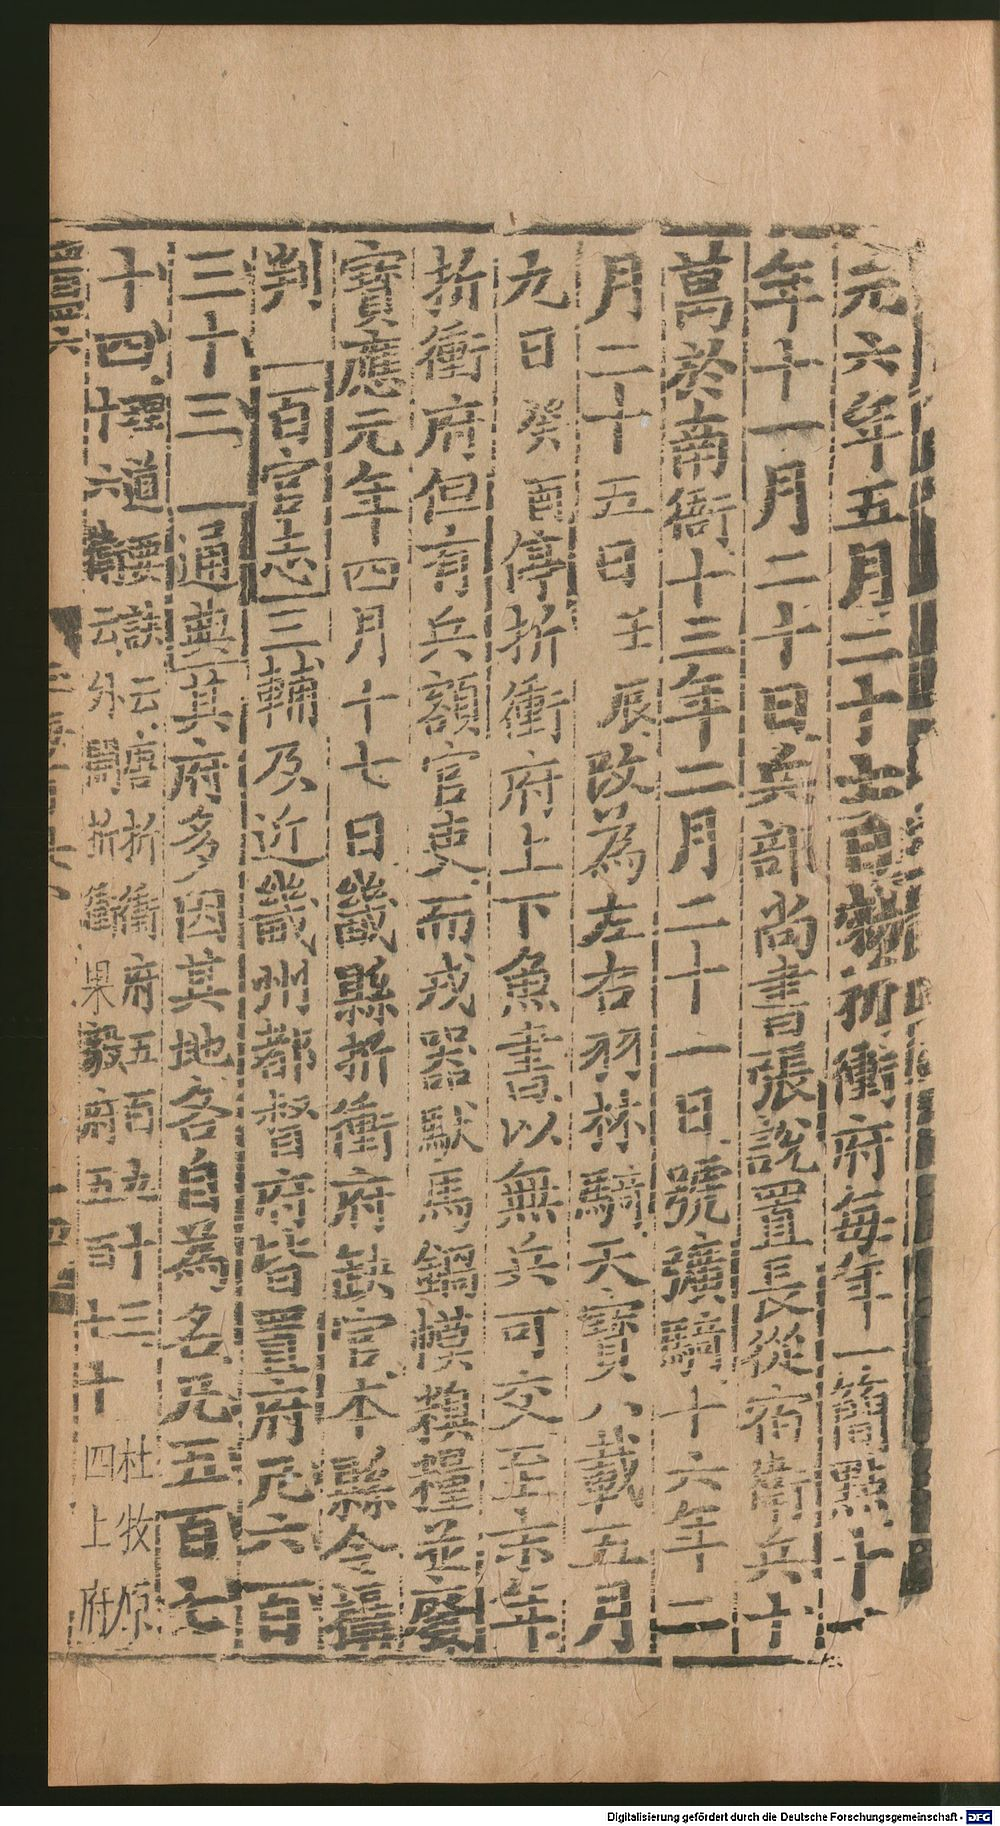 元六年五月二十七日勅折衝府每年一簡點十一
年十一月二十日兵部尚書張說置長從宿衛兵十
萬於南衙十三年二月二十一日號彍騎十六年二
月二十五日壬辰改為左右羽林騎天寶八載五月
九日癸酉停折衝府上下魚書以無兵可交至末年
折衝府但有兵額官吏而戎器馱馬鍋幕糗糧並廢
寶應元年四月十七日畿縣折衝府缺官本縣令攝
判 百官志三輔及近畿州都督府皆置府凡六百
三十三 通典其府多因其地各自為名凡五百七
十四
理道要訣云唐折衝府五百九十三 杜牧原
十六衛云外開折衝果毅府五百七十四 上府
Digitalisierung gefördert durch die Deutsche Forschungsgemeinschaft - DFG